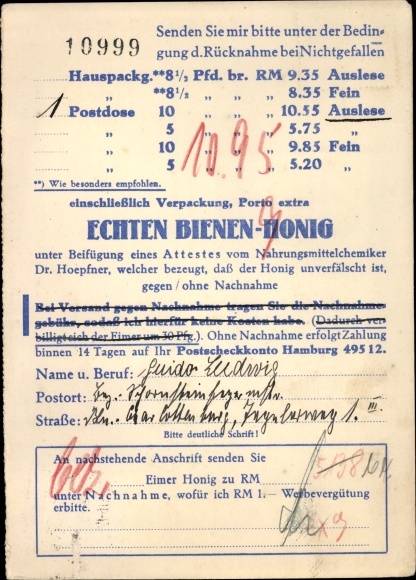 10999
Senden Sie mir bitte unter der Bedin-
gung d. Rücknahme bei Nichtgefallen
Hauspackg. **8½ Pfd. br. RM 9.35 Auslese
„ **8½ „ „ „ 8.35 Fein
1 Postdose 10 „ „ 10.55 Auslese
„ 5 „ „ 5.75 „
„ 10 „ „ 9.85 Fein
„ 5 „ „ 5.20 „
10.95
**) Wie besonders empfohlen.
einschließlich Verpackung, Porto extra
ECHTEN BIENEN-HONIG
unter Beifügung eines Attestes vom Nahrungsmittelchemiker
Dr. Hoepfner, welcher bezeugt, daß der Honig unverfälscht ist,
gegen / ohne Nachnahme
Bei Versand gegen Nachnahme tragen Sie die Nachnahme-
gebühr, sodaß ich hierfür keine Kosten habe. (Dadurch ver-
billigt sich der Eimer um 30 Pfg.). Ohne Nachnahme erfolgt Zahlung
binnen 14 Tagen auf Ihr Postscheckkonto Hamburg 49512.
Name u. Beruf: Guido Ludwig
Postort: Bez.-Schornsteinfegermstr.
Straße: Bln.-Charlottenburg, Tegelerweg 1. III.
Bitte deutliche Schrift!
An nachstehende Anschrift senden Sie
Eimer Honig zu RM
unter Nachnahme, wofür ich RM 1.— Werbevergütung
erbitte.